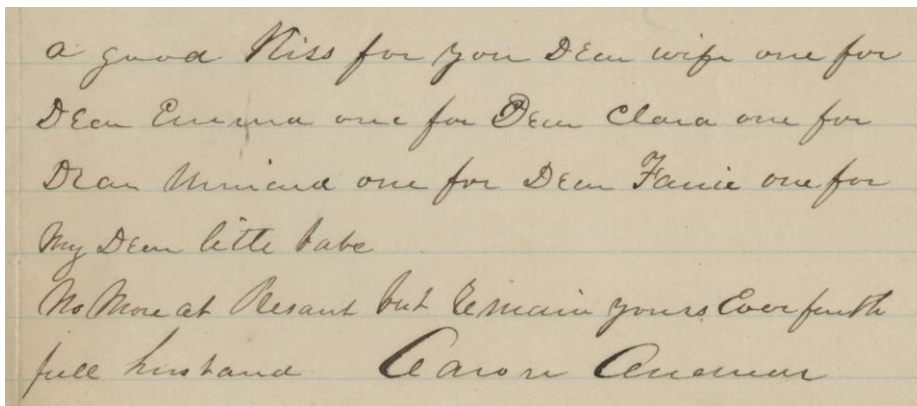 a good Kiss for you Dear wife one for
Dear Emma one for Dear Clara one for
Dear one for Dear Fanie one for
My Dear litte babe
No More at Resant but Remain yours Ever faith
full husband Aaron